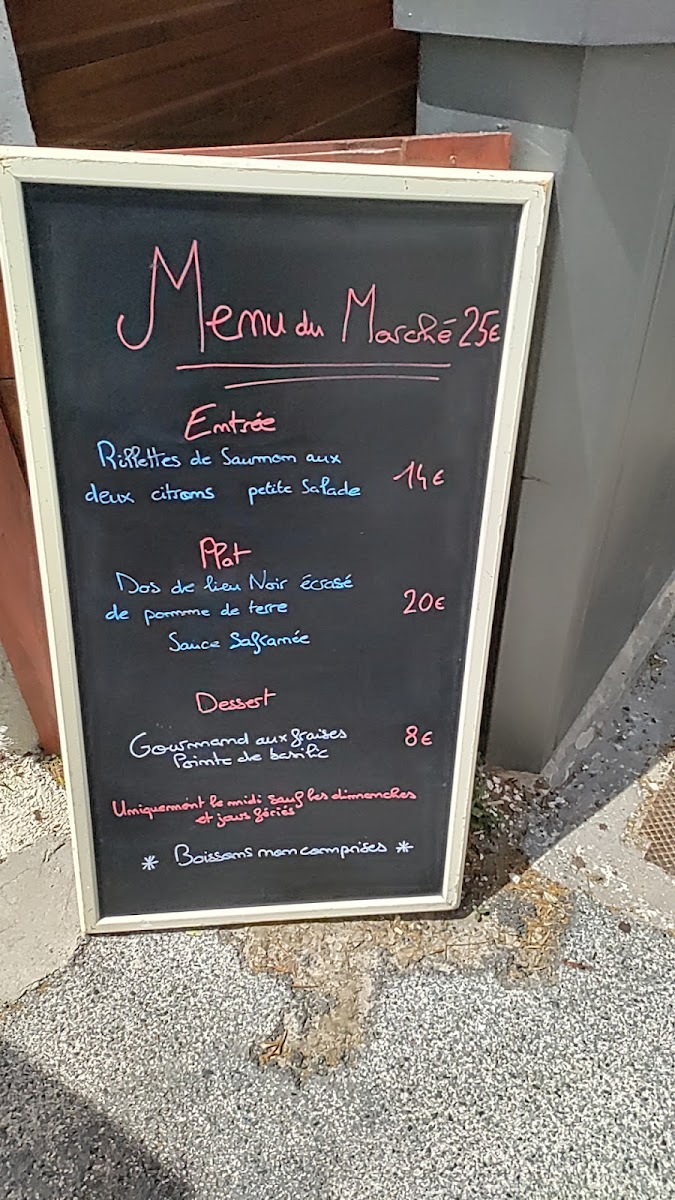 Menu du Marché 25€
Entrée
Rillettes de Saumon aux
deux citrons petite Salade 14€
Plat
Dos de lieu Noir écrasé
de pomme de terre 20€
Sauce Safranée
Dessert
Gourmand aux fraises 8€
Pointe de basilic
Uniquement le midi sauf les dimanches
et jours fériés
* Boissons non comprises *